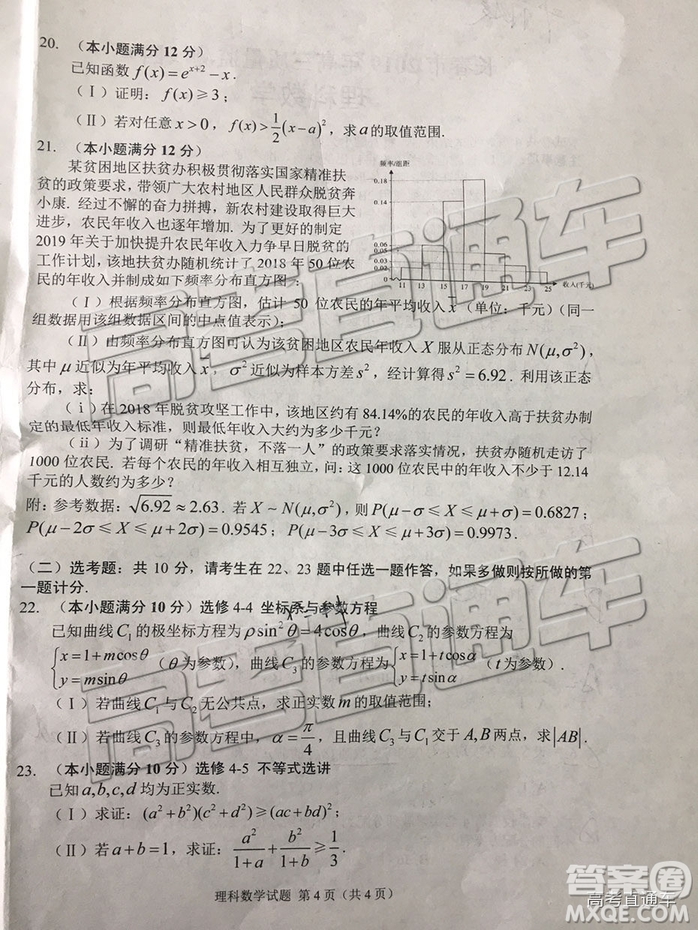 20. （本小题满分 12 分）
已知函数 f(x)=e^{x+2}−x.
（Ⅰ）证明：f(x)⩾3；
（Ⅱ）若对任意 x>0，f(x)>\frac{1}{2}(x−a)^2，求 a 的取值范围.
21. （本小题满分 12 分）
某贫困地区扶贫办积极贯彻落实国家精准扶
贫的政策要求，带领广大农村地区人民群众脱贫奔
小康. 经过不懈的奋力拼搏，新农村建设取得巨大
进步，农民年收入也逐年增加. 为了制定
2019 年关于加快提升农民年收入力争早日脱贫的
工作计划，该地扶贫办随机统计了 2018 年 50 位农
民的年收入并制成如下频率分布直方图：
频率/组距
0.18
0.14
0.06
0.05
0.04
0.03
0.02
11 13 15 17 19 21 23 25 收入(千元)
（Ⅰ）根据频率分布直方图，估计 50 位农民的年平均收入 x̄（单位：千元）（同一
组数据用该组数据区间的中点值表示）；
（Ⅱ）由频率分布直方图可认为该贫困地区农民年收入 X 服从正态分布 N(μ,σ²)，
其中 μ 近似为年平均收入 x̄，σ² 近似为样本方差 s²，经计算得 s²=6.92. 利用该正态
分布，求：
（ⅰ）在 2018 年脱贫攻坚工作中，该地区约有 84.14%的农民的年收入高于扶贫办制
定的最低年收入标准，则最低年收入大约为多少千元？
（ⅱ）为了调研“精准扶贫，不落一人”的政策要求落实情况，扶贫办随机走访了
1000 位农民. 若每个农民的年收入相互独立，问：这 1000 位农民中的年收入不少于 12.14
千元的人数约为多少？
附：参考数据：√6.92≈2.63. 若 X~N(μ,σ²)，则 P(μ−σ⩽X⩽μ+σ)=0.6827；
P(μ−2σ⩽X⩽μ+2σ)=0.9545；P(μ−3σ⩽X⩽μ+3σ)=0.9973.
（二）选考题：共 10 分，请考生在 22、23 题中任选一题作答，如果多做则按所做的第
一题计分.
22. （本小题满分 10 分）选修 4-4 坐标系与参数方程
已知曲线 C₁ 的极坐标方程为 ρsin²θ=4cosθ，曲线 C₂ 的参数方程为
{x=1+mcosθ
y=msinθ（θ 为参数），曲线 C₃ 的参数方程为 {x=1+tcosα
y=tsinα（t 为参数）.
（Ⅰ）若曲线 C₁ 与 C₂ 无公共点，求正实数 m 的取值范围；
（Ⅱ）若曲线 C₃ 的参数方程中，α=\frac{π}{4}，且曲线 C₃ 与 C₁ 交于 A,B 两点，求 |AB|.
23. （本小题满分 10 分）选修 4-5 不等式选讲
已知 a,b,c,d 均为正实数.
（Ⅰ）求证：(a²+b²)(c²+d²)⩾(ac+bd)²；
（Ⅱ）若 a+b=1，求证：\frac{a²}{1+a}+\frac{b²}{1+b}⩾\frac{1}{3}.
理科数学试题 第 4 页（共 4 页）
高考直通车
高考直通车
高考直通车
答案圈
MXQE.COM